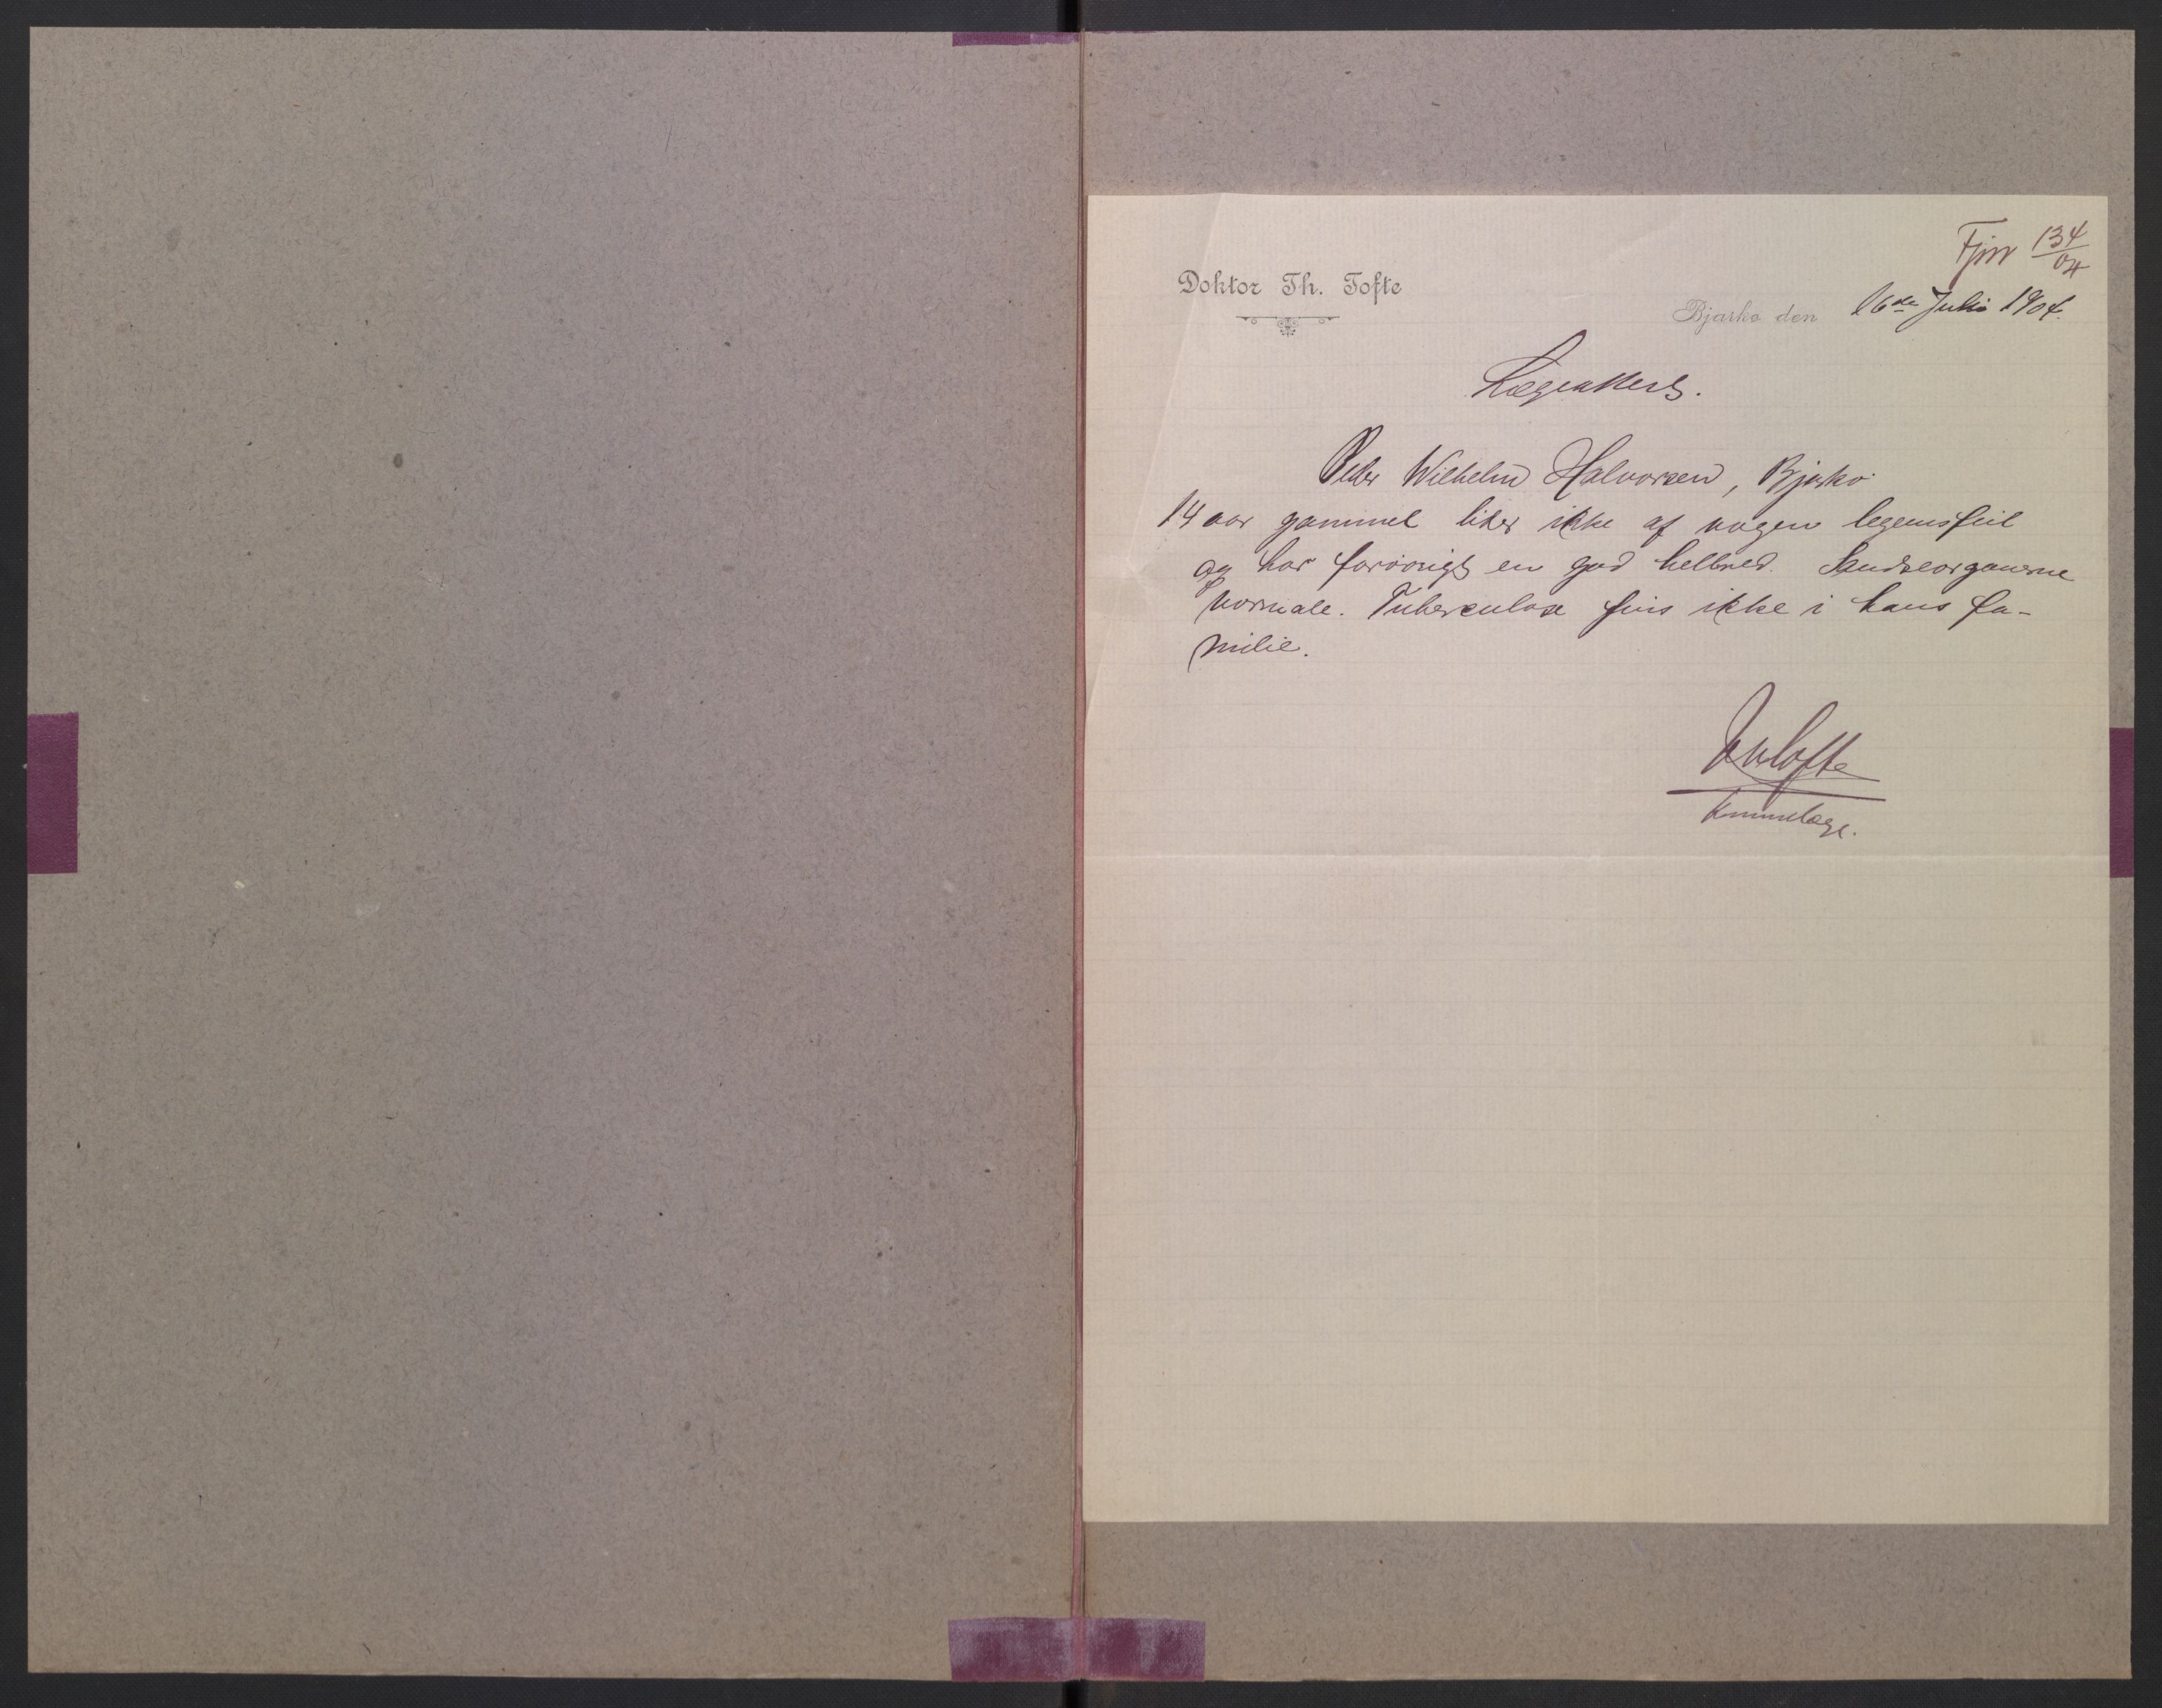 Fjnr 134/04
Doktor Th. Tofte
Bjarkø den 16de Juli 1904.
Lægeattest.
Peder Wilhelm Halvorsen, Bjarkø
14 aar gammel lider ikke af nogen legemsfeil
og har forøvrigt en god helbred. Sandseorganerne
normale. Tuberculose fins ikke i hans fa-
milie.
Tofte
Kommunelæge.